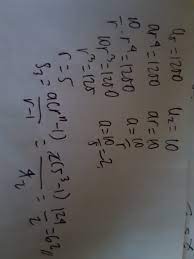 U₅ = 1250 U₂ = 10
ar⁴ = 1250 ar = 10
10/r · r⁴ = 1250 a = 10/r
10r³ = 1250 a = 10/5 = 2
r³ = 125
r = 5
S₃ = a(rⁿ-1)/r-1 = 2(5³-1)/4 = 124/2 = 62